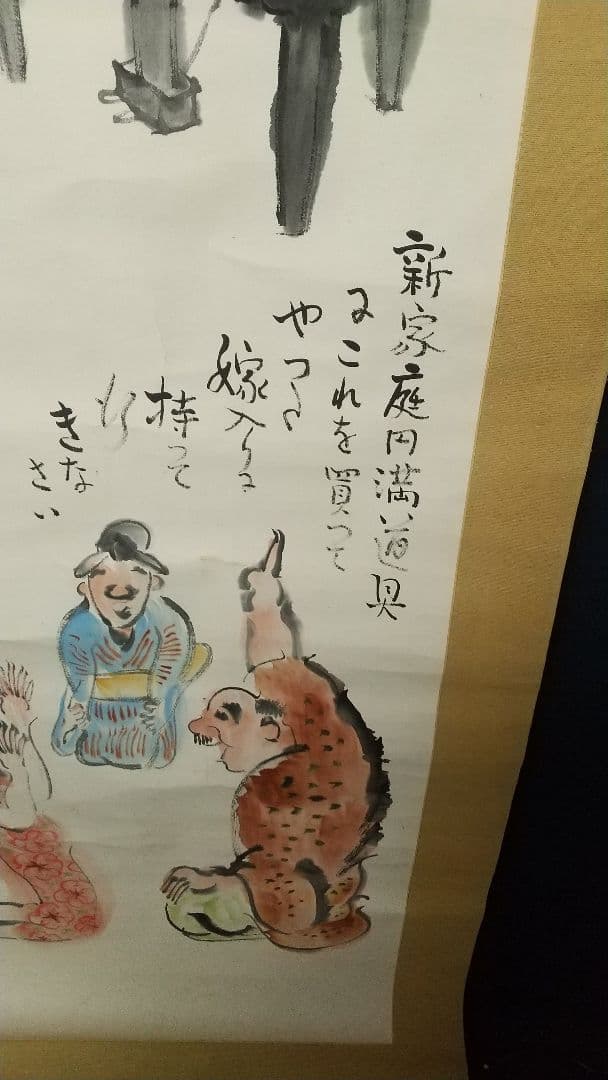 新家庭円満道具
にこれを買って
やつた
嫁入りに
持って
行
きな
さい